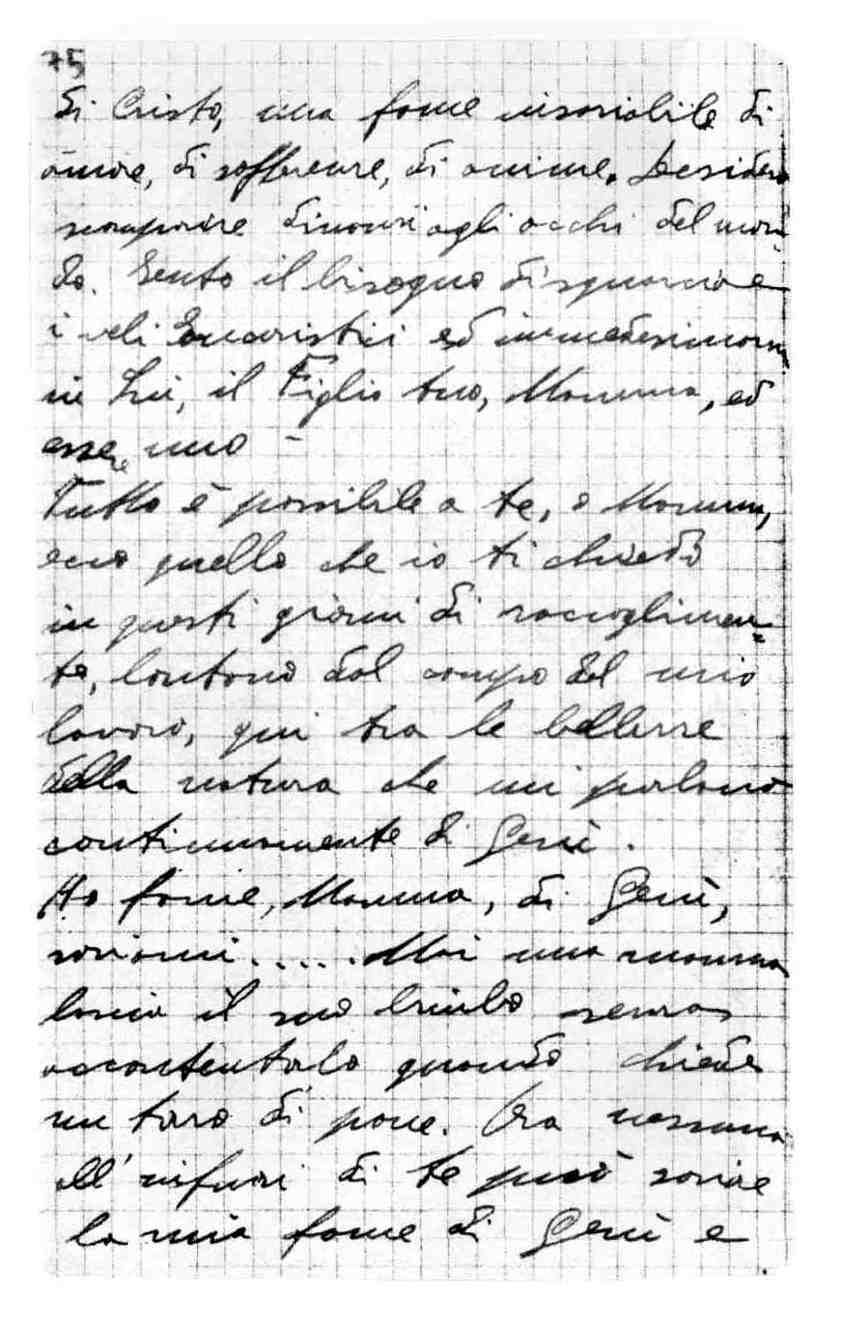 75
di Cristo, una fame insaziabile di
amore, di sofferenze, di anime. Desidero
scomparire dinanzi agli occhi del mon
do. Sento il bisogno di squarciare
i veli Eucaristici ed immedesimarmi
in Lui, il Figlio tuo, Mamma, ed
essere uno -
Tutto è possibile a te, o Mamma,
ecco quello che io ti chiedo
in questi giorni di raccoglimen=
to, lontano dal campo del mio
lavoro, qui tra le bellezze
della natura che mi parlano
continuamente di Gesù.
Ho fame, Mamma, di Gesù,
saziami..... Mai una mamma
lascia il suo bimbo senza
accontentarlo quando chiede
un tozzo di pane. Ora nessuno
all'infuori di te può saziare
la mia fame di Gesù e